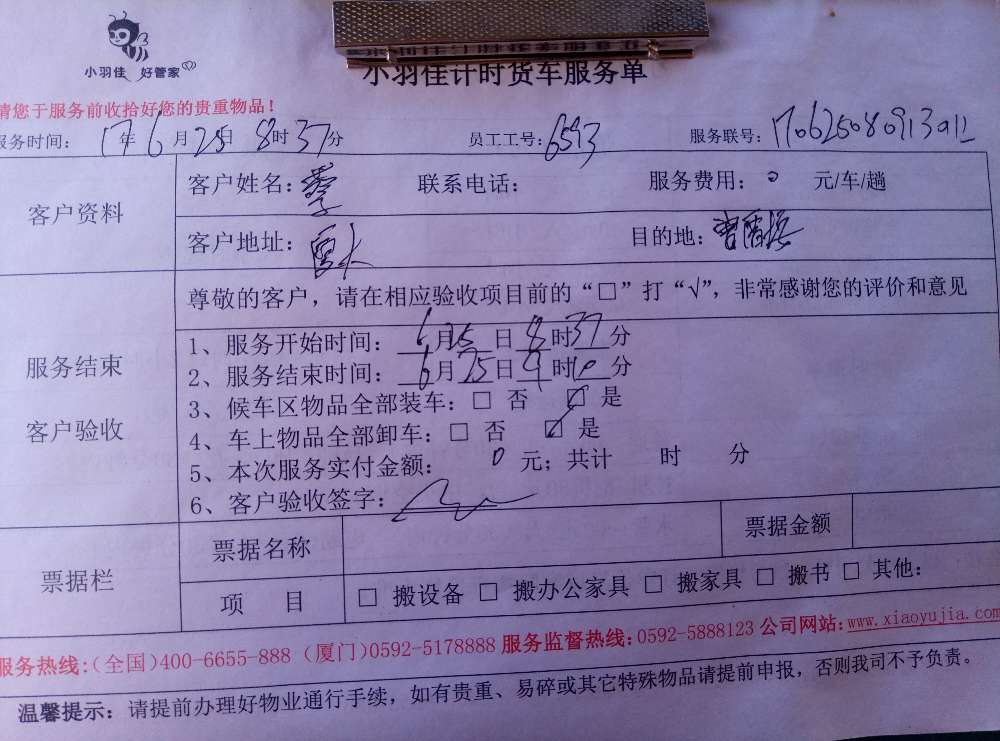 小羽佳 好管家
小羽佳计时货车服务单
请您于服务前收拾好您的贵重物品！
服务时间： 17年6月25日 8时37分 员工工号：6593 服务联号：
客户资料
客户姓名： 联系电话： 服务费用：0 元/车/趟
客户地址： 目的地：
服务结束
客户验收
尊敬的客户，请在相应验收项目前的“□”打“√”，非常感谢您的评价和意见
1、服务开始时间：6月25日8时37分
2、服务结束时间：6月25日9时10分
3、候车区物品全部装车：□ 否 ☑ 是
4、车上物品全部卸车：□ 否 ☑ 是
5、本次服务实付金额： 0 元；共计 时 分
6、客户验收签字：
票据栏
票据名称 票据金额
项 目 □ 搬设备 □ 搬办公家具 □ 搬家具 □ 搬书 □ 其他：
服务热线：（全国）400-6655-888（厦门）0592-5178888 服务监督热线：0592-5888123 公司网站：www.xiaoyujia.com
温馨提示：请提前办理好物业通行手续，如有贵重、易碎或其它特殊物品请提前申报，否则我司不予负责。